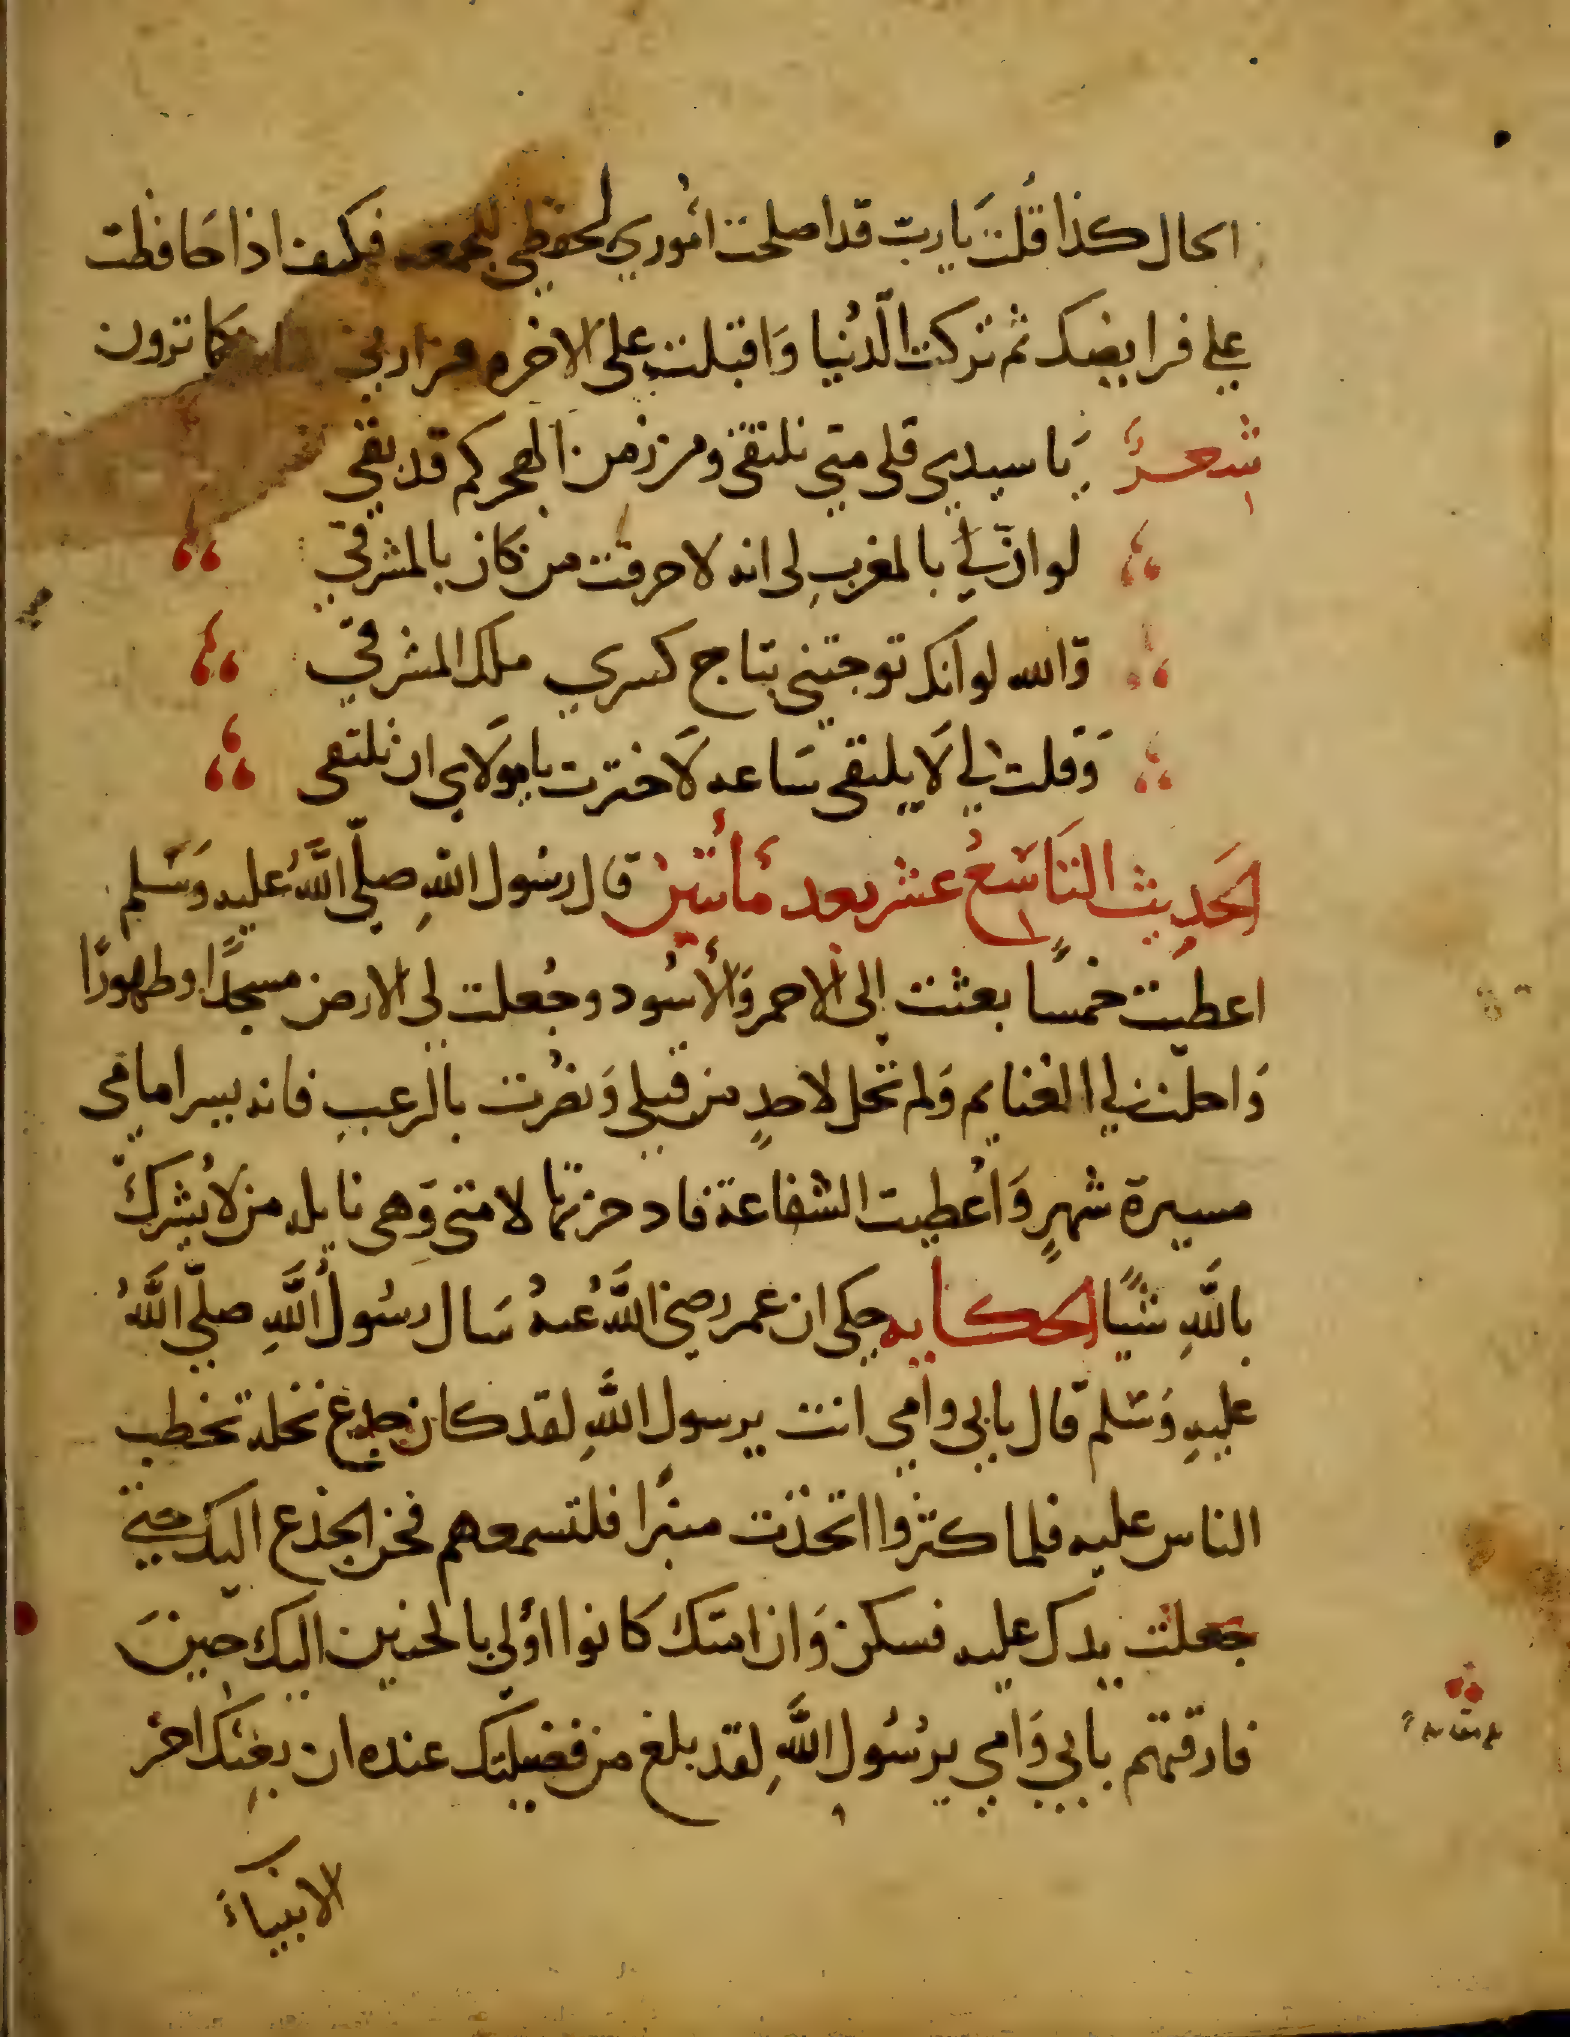 الحال كذا قُلت يا ربّ قد اصلحت اُموري لحفظي للجمعه فكيف اذا حَافظت
علي فرايضك ثم تركت الدُنيا وَاقبلت على الاخره كما ترون
شعرٌ يَا سيدي قلى متي نلتقى ومرزمن الهجر كم قد بقي
لو ان لي بالمغربِ لى انه لاحرقت من كان بالمشرقي
وَالله لو انك توجتني بتاج كسري ملك المشرقي
وَقلت لي لَا يلتقى سَاعه لَاخترت يا مولَاي ان نلتقى
الحَديث التَاسَعُ عشر بعد مأتين قال رسُول اللهِ صلّى اللَّهُ عليه وَسَلم
اعطيت خمسًا بعثت الى الاحمر وَالأسُود وجُعلت لى الارض مسجدًا وطهورًا
وَاحلت لي الغنايم وَلم تحل لاحدٍ من قبلى وَنصُرت بالرعبِ فانه يسر امامى
مسيرة شهرٍ وَاعُطيت الشفاعة فادخرتها لامتى وَهى نايله من لا يُشركُ
باللَّهِ شيًا الحكايه حكى ان عمر رضي اللَّهُ عنهُ سَال رسُول اللَّهِ صلّى اللَّهُ
عليهِ وَسَلم قال بابى وامى انت يرسول اللَّهِ لقد كان جدع نخله تخطب
الناس عليه فلما كثروا اتخذت منبرًا فلتسمعهم فحن الجذع اليك حتي
جعلت يدك عليه فسكن وَان امتك كانوا اولى بالحنين اليك حينَ
فارقتهم بابي وَامي يرسُول اللَّهِ لقد بلغ من فضيلتك عنده ان بعثك اخر
الانبياءَ